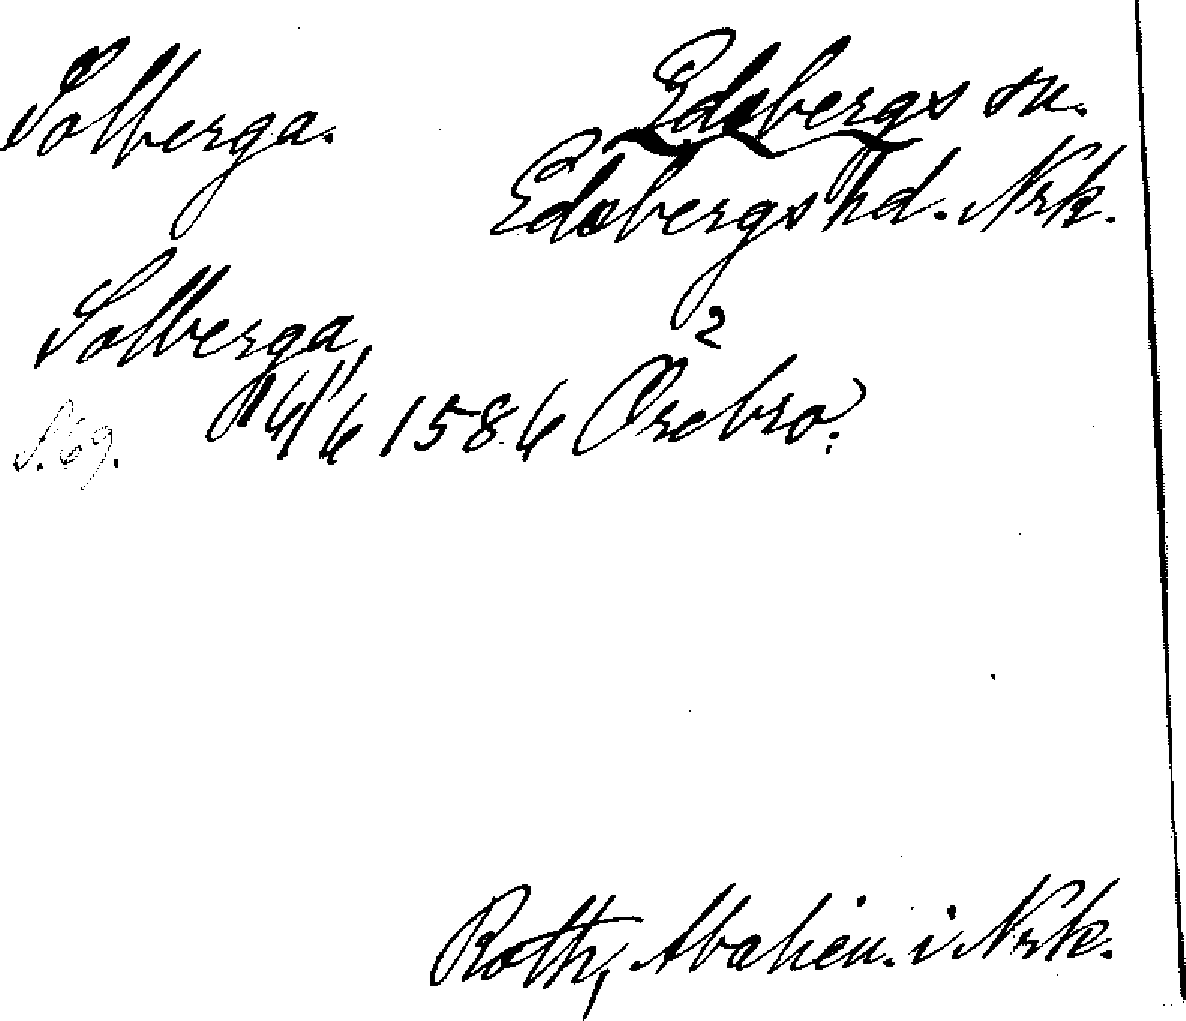 Solberga. Edsbergs sn.
Edsbergs hd. Nrk.
Solberga
2
1586 Örebro:
S. 69.
Roth, Abalien. i Nrk.